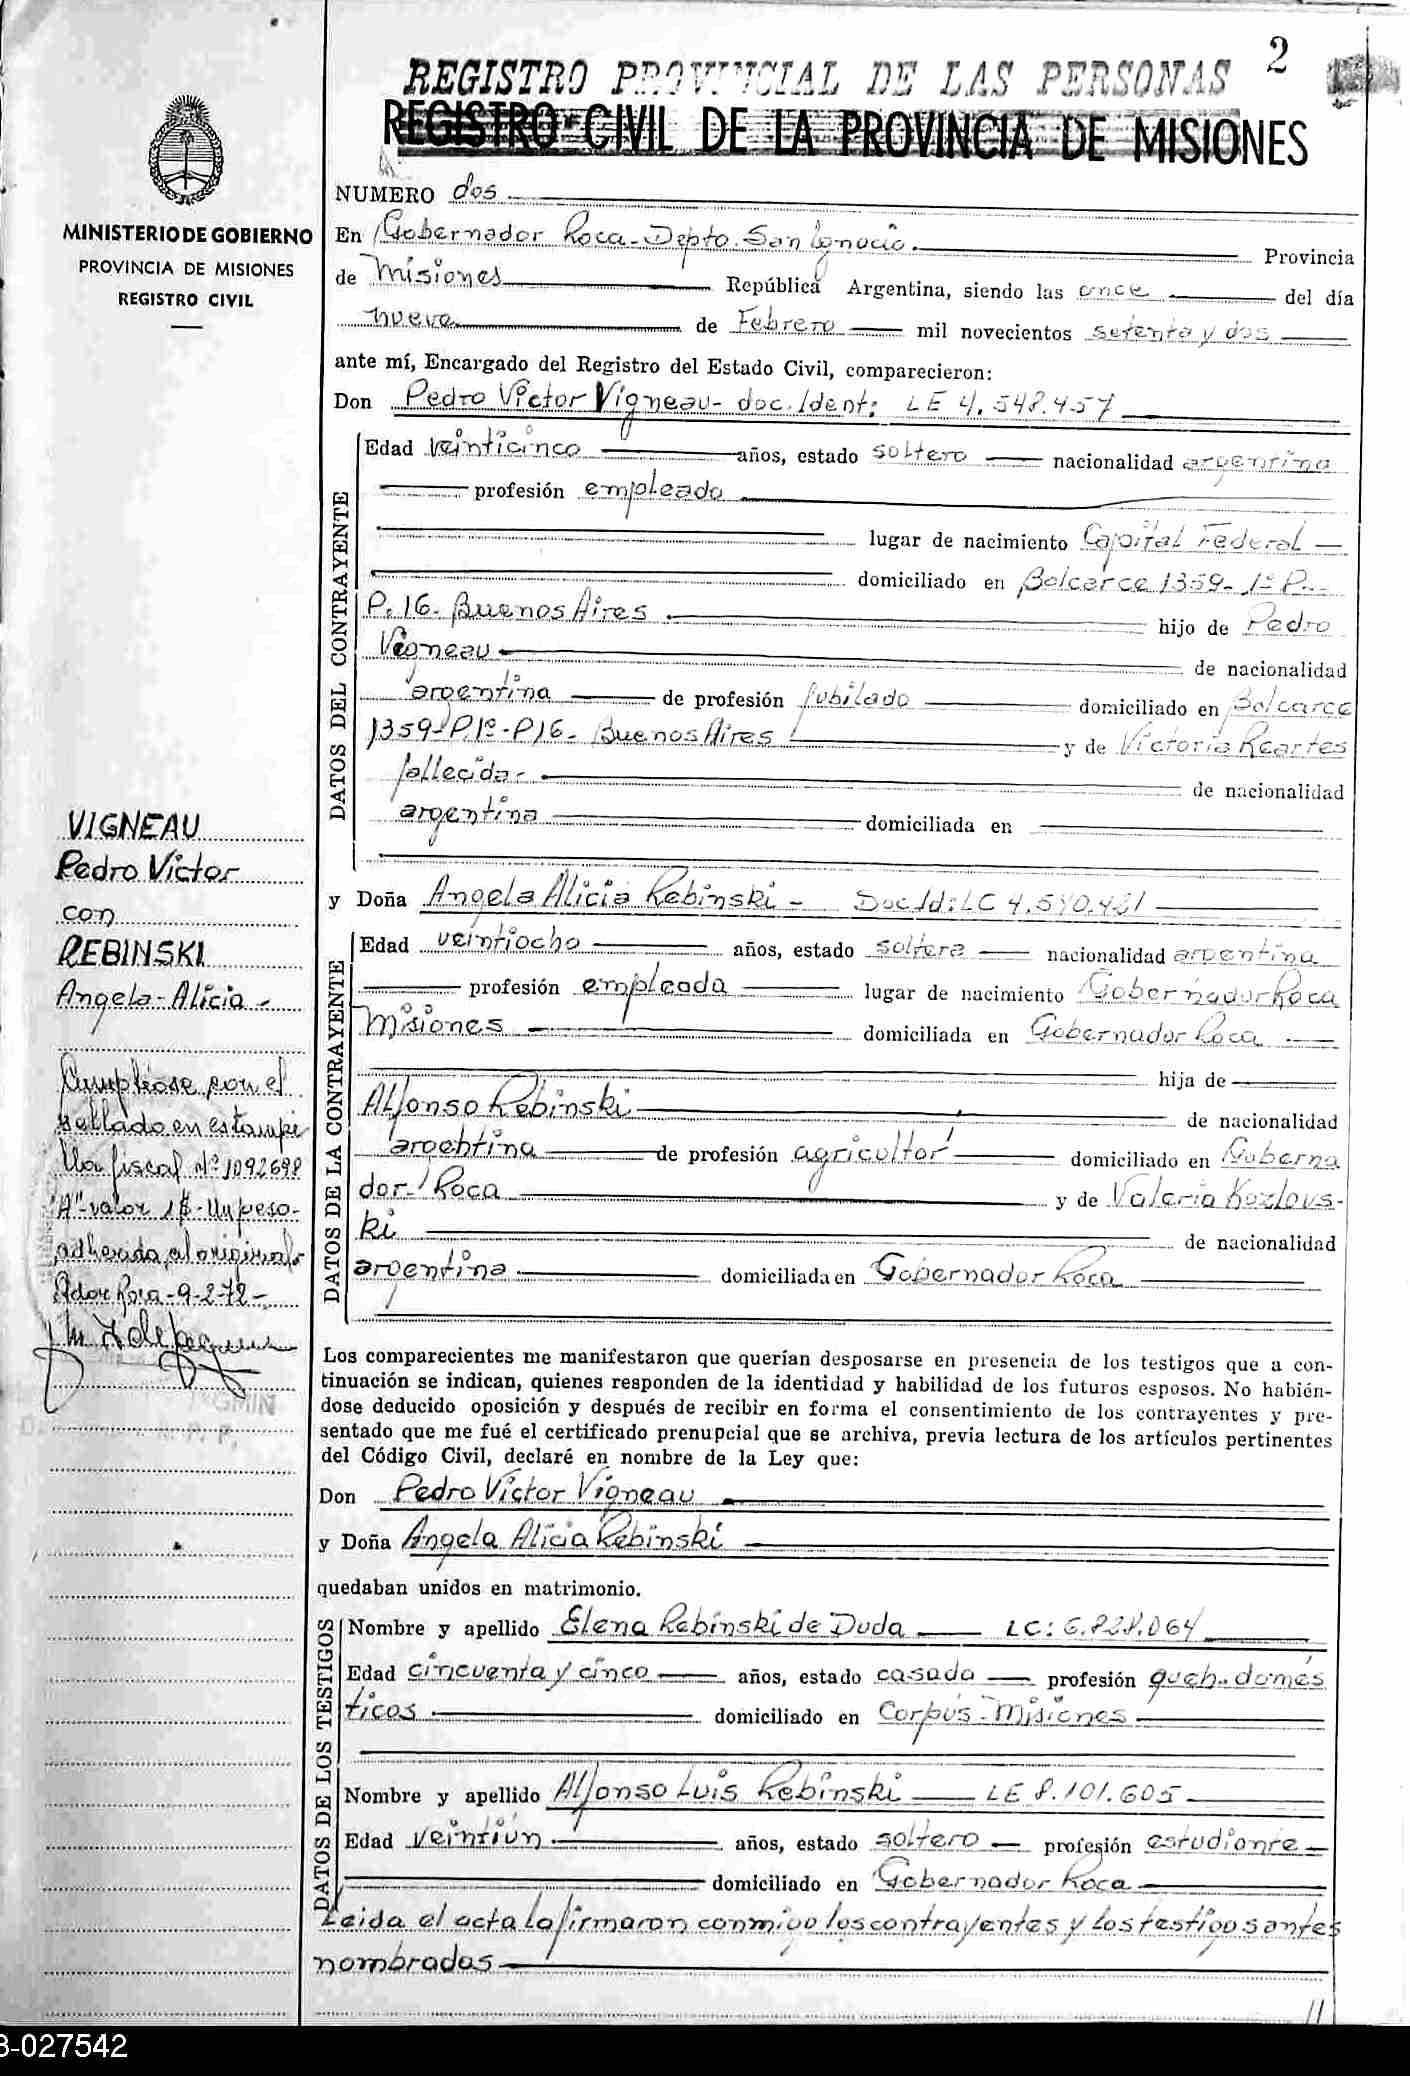 2
REGISTRO PROVINCIAL DE LAS PERSONAS
REGISTRO CIVIL DE LA PROVINCIA DE MISIONES
MINISTERIO DE GOBIERNO
PROVINCIA DE MISIONES
REGISTRO CIVIL
NUMERO dos
En Gobernador Roca-Depto. San Ignacio. Provincia
de Misiones República Argentina, siendo las once del día
nueve de Febrero mil novecientos setenta y dos
ante mí, Encargado del Registro del Estado Civil, comparecieron:
Don Pedro Victor Vigneau- doc. Ident: LE 4.548.457
DATOS DEL CONTRAYENTE
Edad veinticinco años, estado soltero nacionalidad argentina
profesión empleado
lugar de nacimiento Capital Federal
domiciliado en Balcarce 1359- 1º P.-
P. 16- Buenos Aires hijo de Pedro
Vigneau de nacionalidad
argentina de profesión jubilado domiciliado en Balcarce
1359-P.1º-P16- Buenos Aires y de Victoria Reartes
fallecida- de nacionalidad
argentina domiciliada en
y Doña Angela Alicia Rebinski - Doc Id: LC 4.540.421
DATOS DE LA CONTRAYENTE
Edad veintiocho años, estado soltera nacionalidad argentina
profesión empleada lugar de nacimiento Gobernador Roca
Misiones domiciliada en Gobernador Roca
hija de
Alfonso Rebinski de nacionalidad
argentina de profesión agricultor domiciliado en Goberna
dor- Roca y de Valeria Kozlovs-
ki de nacionalidad
argentina domiciliada en Gobernador Roca
VIGNEAU
Pedro Victor
con
REBINSKI
Angela-Alicia -
Cumpliose con el
sellado en estampi
lla fiscal Nº 1092698
"A"-valor 1$-Un peso-
adherida al original-
Gdor Roca-9-2-72-
Los comparecientes me manifestaron que querían desposarse en presencia de los testigos que a con-
tinuación se indican, quienes responden de la identidad y habilidad de los futuros esposos. No habién-
dose deducido oposición y después de recibir en forma el consentimiento de los contrayentes y pre-
sentado que me fué el certificado prenupcial que se archiva, previa lectura de los artículos pertinentes
del Código Civil, declaré en nombre de la Ley que:
Don Pedro Victor Vigneau
y Doña Angela Alicia Rebinski
quedaban unidos en matrimonio.
DATOS DE LOS TESTIGOS
Nombre y apellido Elena Rebinski de Duda LC: 6.828.064
Edad cincuenta y cinco años, estado casada profesión queh. domés
ticos domiciliado en Corpus-Misiones
Nombre y apellido Alfonso Luis Rebinski LE 8.101.605
Edad veintiún años, estado soltero profesión estudiante
domiciliado en Gobernador Roca
Leida el acta la firmaron conmigo los contrayentes y los testigos antes
nombrados
//
3-027542